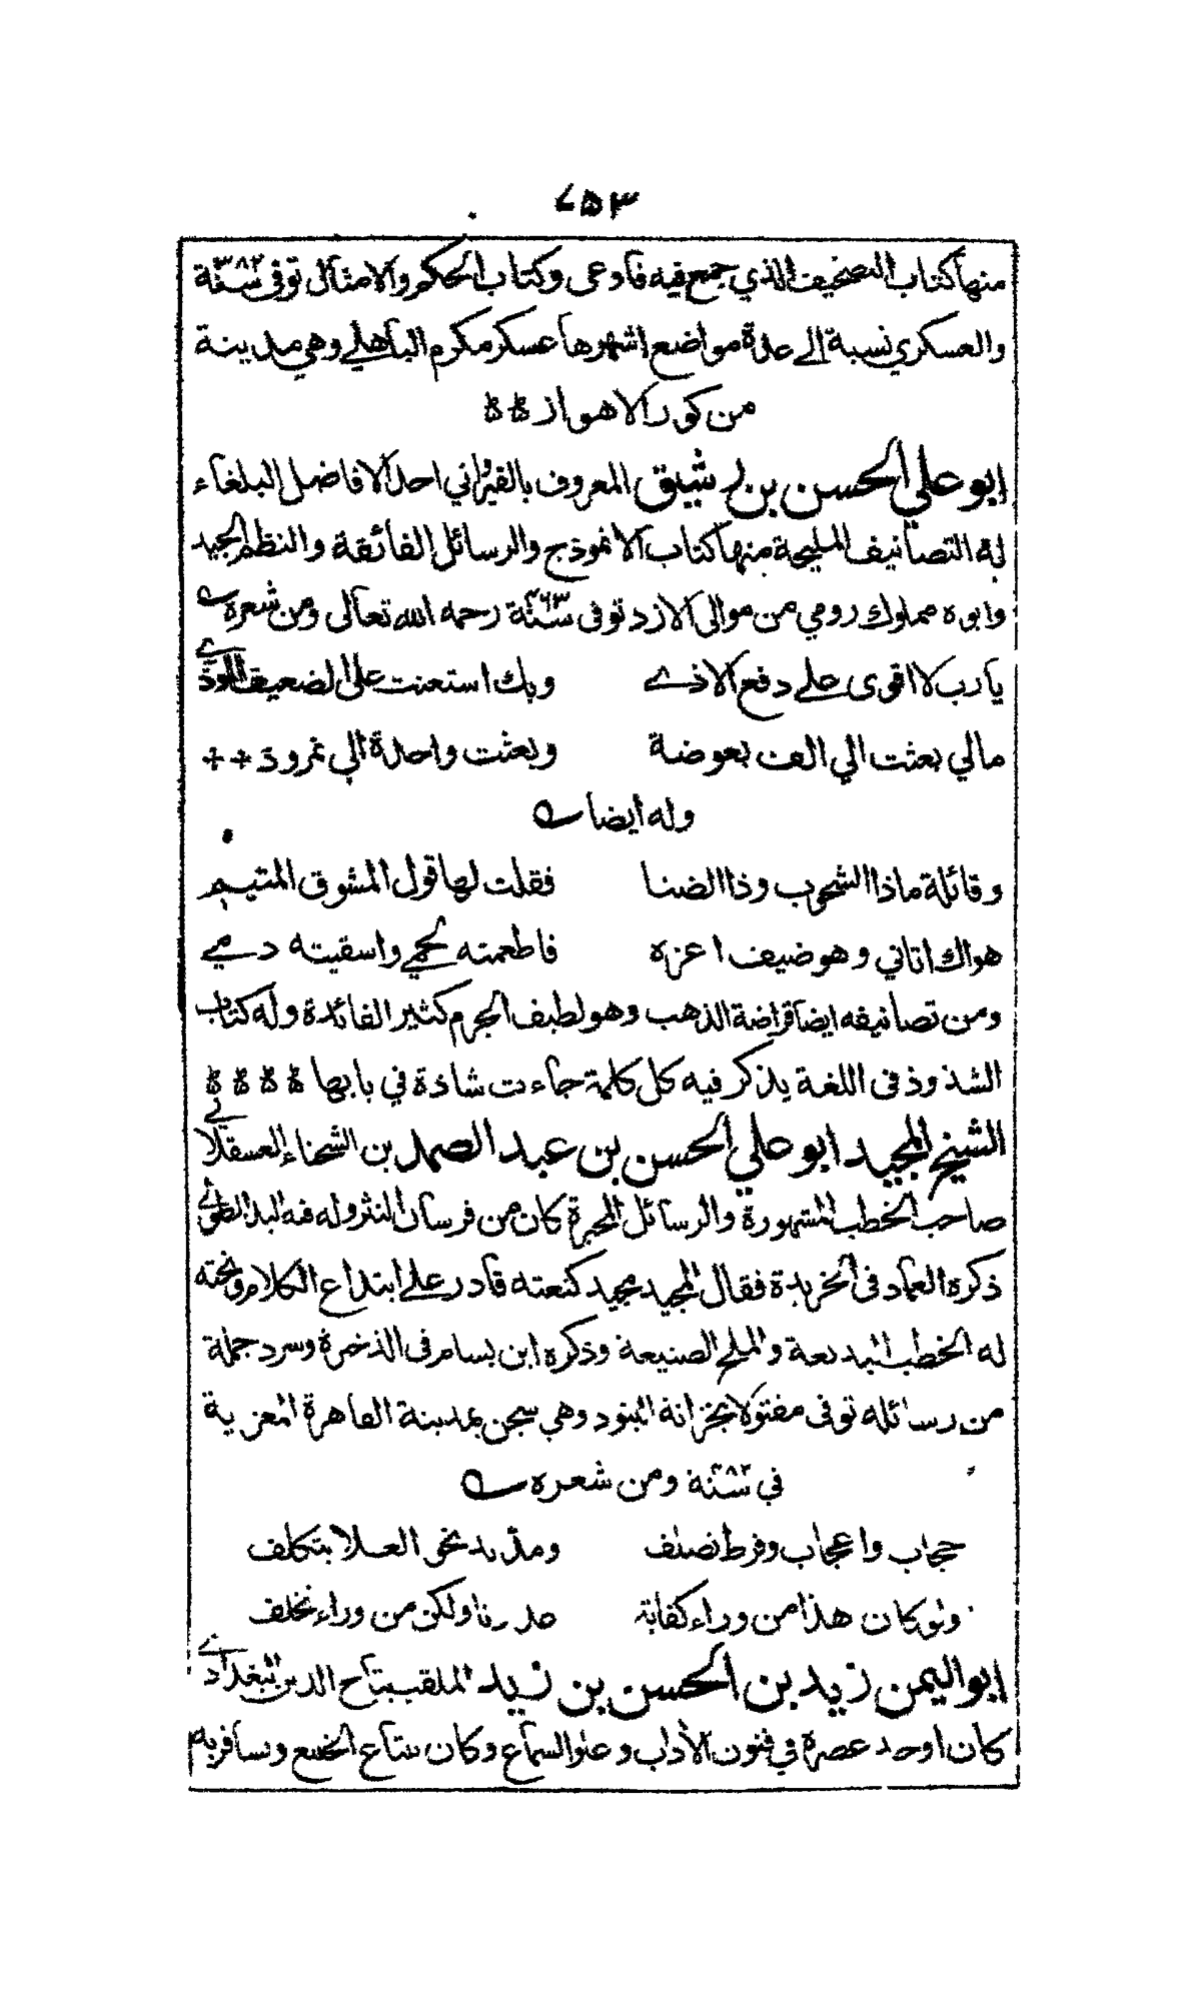 ٧٥٣
منها كتاب التصحيف الذي جمع فيه فاوعى وكتاب الحكم والامثال توفى سنة ٣٨٢
والعسكري نسبة الى عدة مواضع اشهرها عسكر مكرم الباهلي وهي مدينة
من كور الاهواز ة ة
ابو علي الحسن بن رشيق المعروف بالقيرواني احد الافاضل البلغاء
له التصانيف المليحة منها كتاب الانموذج والرسائل الفائقة والنظم الجيد
وابوه مملوك رومي من موالى الازد توفى سنة ٤٦٣ رحمه الله تعالى ومن شعره
يارب لا اقوى على دفع الاذى وبك استعنت على الضعيف الموذي
مالي بعثت الي الف بعوضة وبعثت واحدة الي نمرود ++
وله ايضا
وقائلة ماذا الشحوب وذا الضنا فقلت لها قول المشوق المتيم
هواك اتاني وهو ضيف اعزه فاطعمته لحمي واسقيته دمي
ومن تصانيفه ايضا قراضة الذهب وهو لطيف الجرم كثير الفائدة وله كتاب
الشذوذ فى اللغة يذكر فيه كل كلمة جاءت شاذة في بابها ة ة ة ة
الشيخ المجيد ابو علي الحسن بن عبد الصمد بن الشخناء العسقلاني
صاحب الخطب المشهورة والرسائل المحبرة كان من فرسان النثر وله فيه اليد الطولى
ذكره العماد فى الخريدة فقال المجيد مجيد كنعته قادر على ابتداع الكلام ونحته
له الخطب البديعة والملح الصنيعة وذكره ابن بسام فى الذخيرة وسرد جملة
من رسائله توفى مقتولا بخزانة البنود وهي سجن بمدينة القاهرة المعزية
في سنة ومن شعره
حجاب واعجاب وفرط تصلف ومد يد نحو العلا بتكلف
ولو كان هذا من وراء كفاية عذرنا ولكن من وراء تخلف
ابو اليمن زيد بن الحسن بن زيد الملقب بتاج الدين البغدادي
كان اوحد عصره في فنون الاداب وعلو السماع وكان يبتاع الخليع ويسافر به